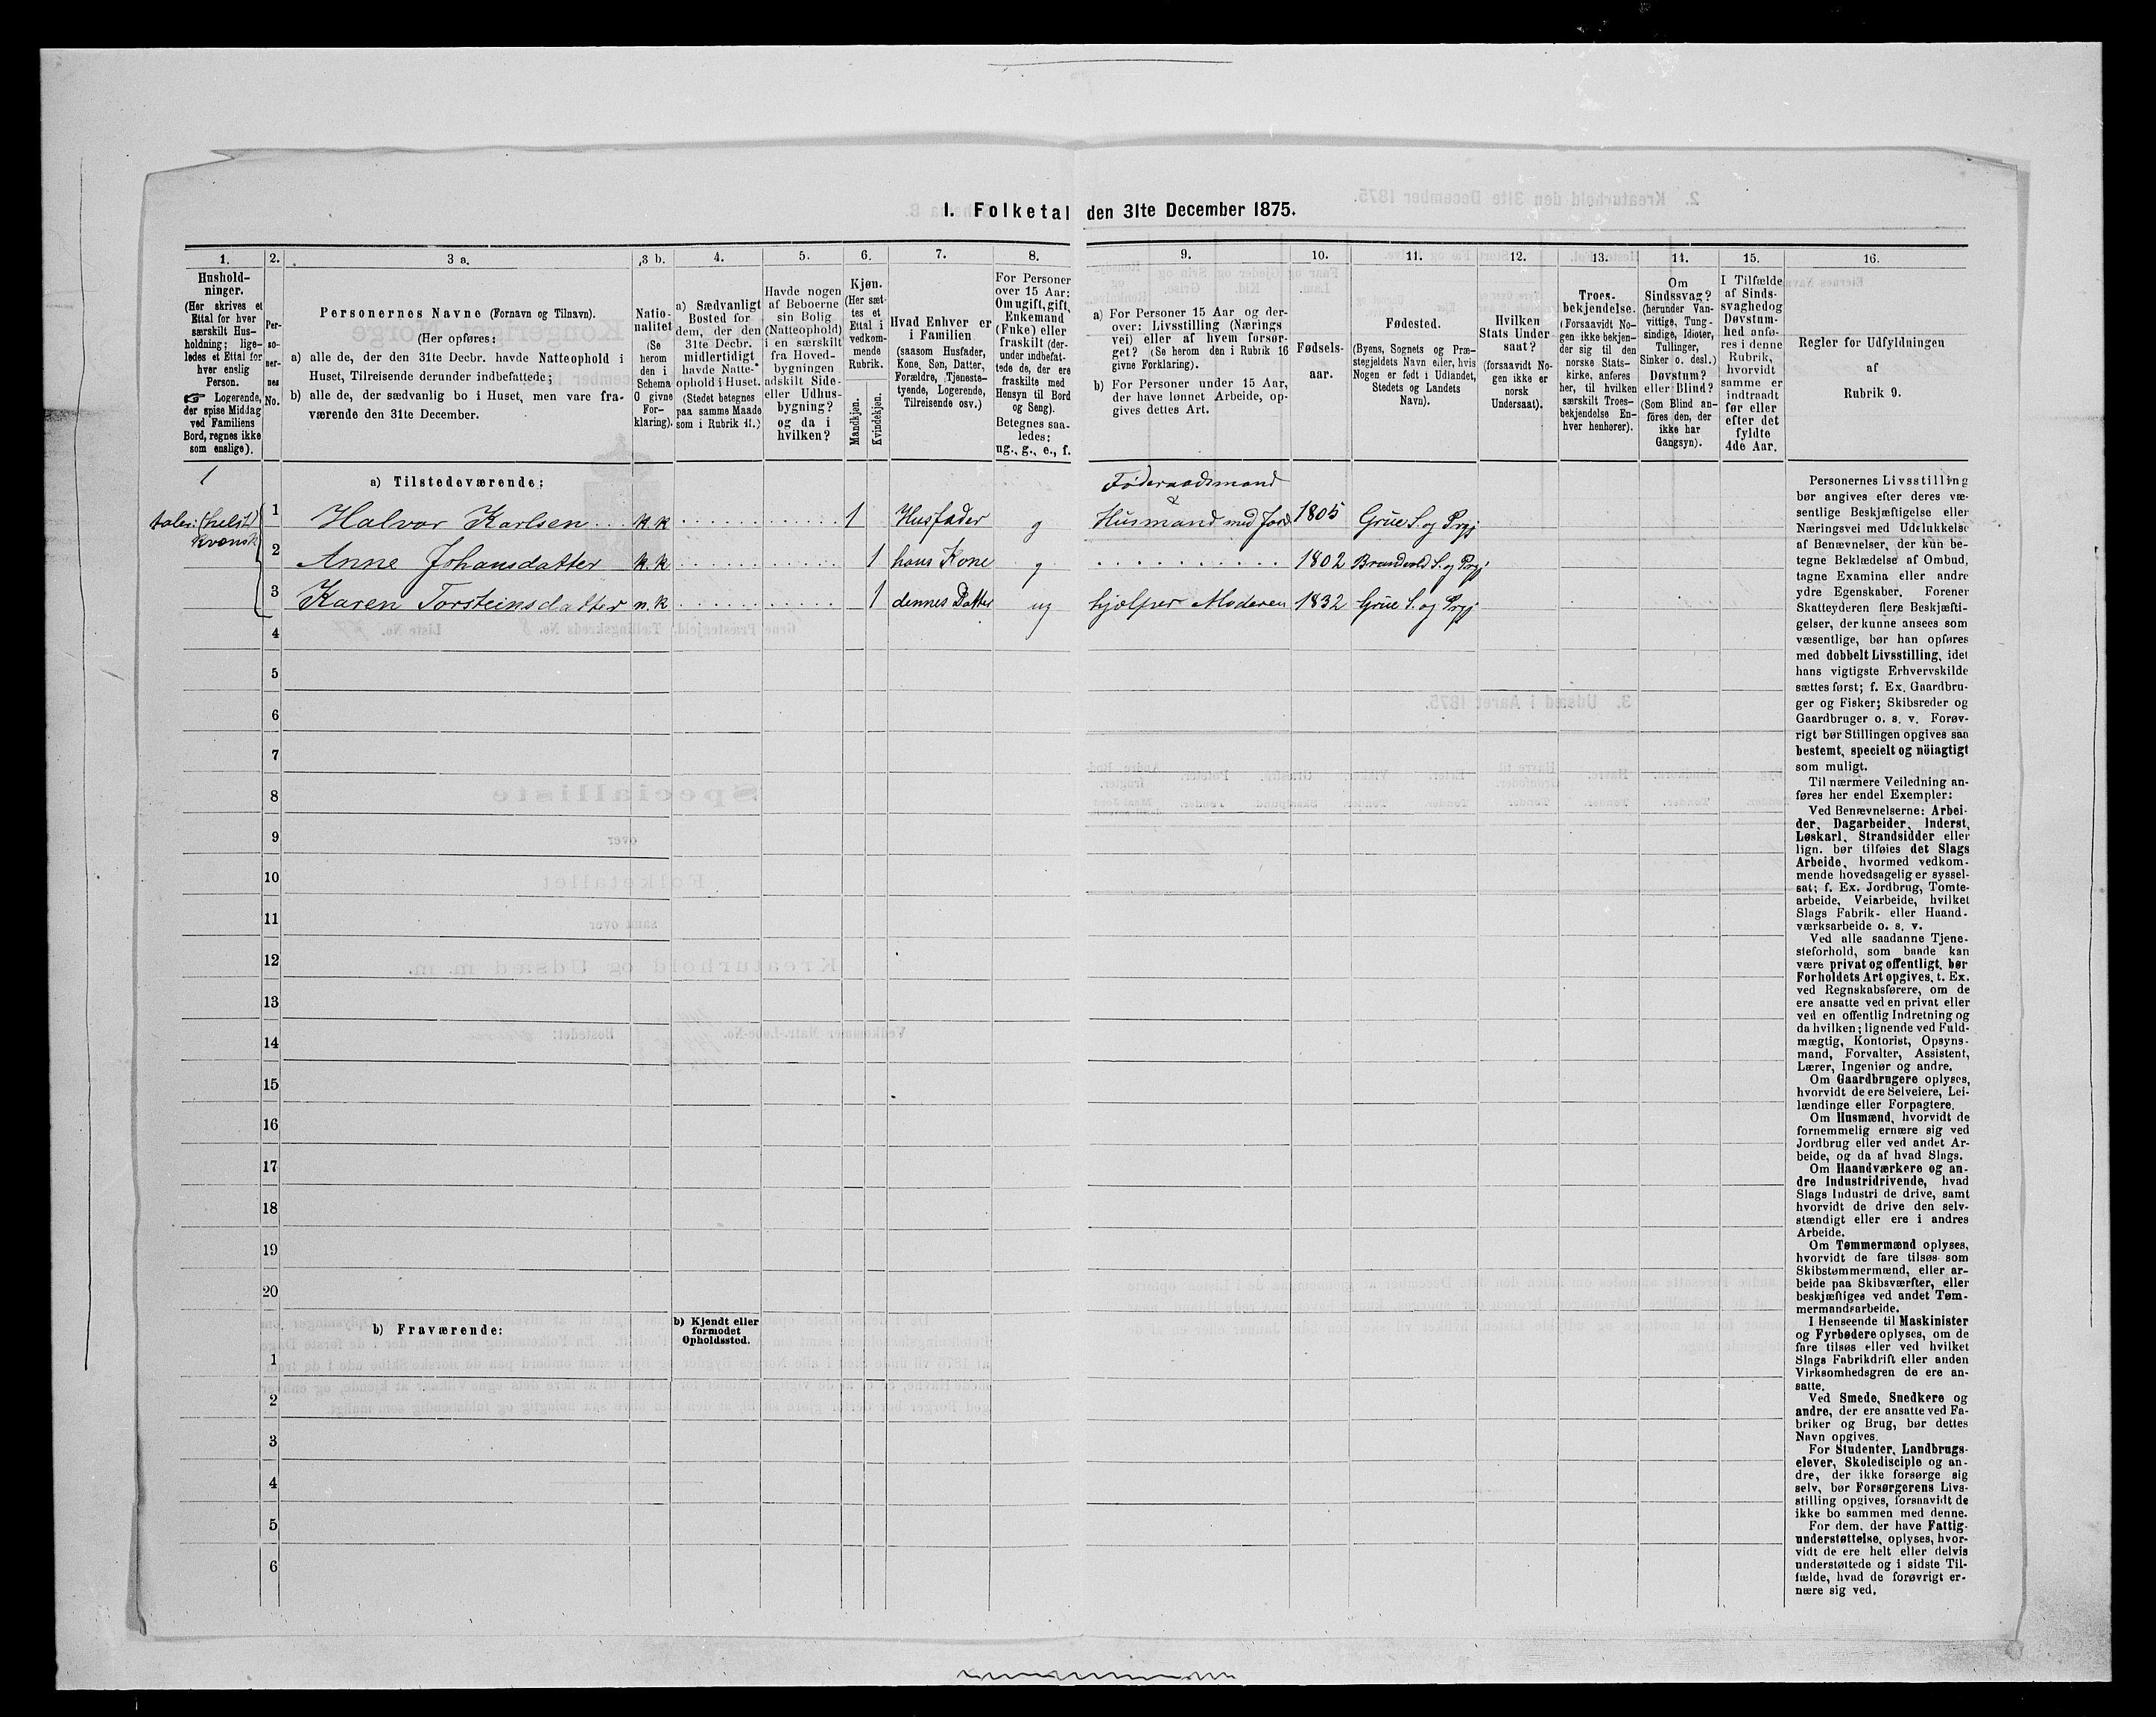 1. Folketal den 31te December 1875.
1.
Hushold-
ninger.
(Her skrives et
Ettal for hver
særskilt Hus-
holdning; lige-
ledes et Ettal for
hver enslig
Person.
☞ Logerende,
der spise Middag
ved Familiens
Bord, regnes ikke
som enslige).
2.
Per-
so-
ner-
nes
No.
3 a.
Personernes Navne (Fornavn og Tilnavn).
(Her opføres:
a) alle de, der den 31te Decbr. havde Natteophold i
Huset, Tilreisende derunder indbefattede;
b) alle de, der sædvanlig bo i Huset, men vare fra-
værende den 31te December.
3 b.
Natio-
nalitet
(Se
herom
den i
Schema
O givne
For-
klaring).
4.
a) Sædvanligt
Bosted for
dem, der den
31te Decbr.
midlertidigt
havde Natte-
ophold i Huset.
(Stedet betegnes
paa samme Maade
som i Rubrik 11.)
5.
Havde nogen
af Beboerne
sin Bolig
(Natteophold)
i en særskilt
fra Hoved-
bygningen
adskilt Side-
eller Udhus-
bygning?
og da i
hvilken?
6.
Kjøn.
(Her sæt-
tes et
Ettal i
vedkom-
mende
Rubrik.
Mandkjøn.
Kvindekjøn.
7.
Hvad Enhver er
i Familien
(saasom Husfader,
Kone, Søn, Datter,
Forældre, Tjeneste-
tyende, Logerende,
Tilreisende osv.)
8.
For Personer
over 15 Aar:
Om ugift, gift,
Enkemand
(Enke) eller
fraskilt (der-
under indbefat-
tede de, der ere
fraskilte med
Hensyn til Bord
og Seng).
Betegnes saa-
ledes:
ug., g., e., f.
9.
a) For Personer 15 Aar og der-
over: Livsstilling (Nærings
vei) eller af hvem forsør-
get? (Se herom den i Rubrik 16
givne Forklaring).
b) For Personer under 15 Aar,
der have lønnet Arbeide, op-
gives dettes Art.
10.
Fødsels-
aar.
11.
Fødested.
(Byens, Sognets og Præ-
stegjeldets Navn eller, hvis
Nogen er født i Udlandet,
Stedets og Landets
Navn).
12.
Hvilken
Stats Under
saat?
(forsaavidt No-
gen ikke er
norsk
Undersaat).
13.
Troes-
bekjendelse.
(Forsaavidt No-
gen ikke bekjen-
der sig til den
norske Stats-
kirke, anføres
her, til hvilken
særskilt Troes-
bekjendelse En-
hver henhører).
14.
Om
Sindssvag?
(herunder Van-
vittige, Tung-
sindige, Idioter,
Tullinger,
Sinker o. desl.)
Døvstum?
eller Blind?
(Som Blind an-
føres den, der
ikke har
Gangsyn).
15.
I Tilfælde
af Sinds-
svaghed og
Døvstum-
hed anfø-
res i denne
Rubrik,
hvorvidt
samme er
indtraadt
før eller
efter det
fyldte
4de Aar.
16.
Regler for Udfyldningen
af
Rubrik 9.
1
a) Tilstedeværende:
Føderaadsmand
&
taler: (helst)
kvensk
1 Halvor Karlsen k.k 1 Husfader g Husmand med Jord 1805 Grue S. og Prgj
2 Anne Johansdatter k.k 1 hans Kone g 1802 Brandvold S. og Prgj
3 Karen Torsteinsdatter n.k 1 dennes Datter ug hjælper Moderen 1832 Grue S. og Prgj
4
5
6
7
8
9
10
11
12
13
14
15
16
17
18
19
20
b) Fraværende:
b) Kjendt eller
formodet
Opholdssted.
1
2
3
4
5
6
Personernes Livsstilling
bør angives efter deres væ-
sentlige Beskjæftigelse eller
Næringsvei med Udelukkelse
af Benævnelser, der kun be-
tegne Beklædelse af Ombud,
tagne Examina eller andre
ydre Egenskaber. Forener
Skatteyderen flere Beskjæfti-
gelser, der kunne ansees som
væsentlige, bør han opføres
med dobbelt Livsstilling, idet
hans vigtigste Erhvervskilde
sættes først; f. Ex. Gaardbru-
ger og Fisker; Skibsreder og
Gaardbruger o. s. v. Forøv-
rigt bør Stillingen opgives saa
bestemt, specielt og nöiagtigt
som muligt.
Til nærmere Veiledning an-
føres her endel Exempler:
Ved Benævnelserne: Arbei-
der, Dagarbeider, Inderst,
Løskarl, Strandsidder eller
lign. bør tilføies det Slags
Arbeide, hvormed vedkom-
mende hovedsagelig er syssel-
sat; f. Ex. Jordbrug, Tomte-
arbeide, Veiarbeide, hvilket
Slags Fabrik- eller Haand-
værksarbeide o. s. v.
Ved alle saadanne Tjene-
steforhold, som baade kan
være privat og offentligt, bør
Forholdets Art opgives, t. Ex.
ved Regnskabsførere, om de
ere ansatte ved en privat eller
ved en offentlig Indretning og
da hvilken; lignende ved Fuld-
mægtig, Kontorist, Opsyns-
mand, Forvalter, Assistent,
Lærer, Ingeniør og andre.
Om Gaardbrugere oplyses,
hvorvidt de ere Selveiere, Lei-
lændinge eller Forpagtere.
Om Husmænd, hvorvidt de
fornemmelig ernære sig ved
Jordbrug eller ved andet Ar-
beide, og da af hvad Slags.
Om Haandværkere og an-
dre Industridrivende, hvad
Slags Industri de drive, samt
hvorvidt de drive den selv-
stændigt eller ere i andres
Arbeide.
Om Tømmermænd oplyses,
hvorvidt de fare tilsøs som
Skibstømmermænd, eller ar-
beide paa Skibsværfter, eller
beskjæftiges ved andet Tøm-
mermandsarbeide.
I Henseende til Maskinister
og Fyrbødere oplyses, om de
fare tilsøs eller ved hvilket
Slags Fabrikdrift eller anden
Virksomhedsgren de ere an-
satte.
Ved Smede, Snedkere og
andre, der ere ansatte ved Fa-
briker og Brug, bør dettes
Navn opgives.
For Studenter, Landbrugs-
elever, Skoledisciple og an-
dre, der ikke forsørge sig
selv, bør Forsørgerens Livs-
stilling opgives, forsaavidt de
ikke bo sammen med denne.
For dem, der have Fattig-
understøttelse, oplyses, hvor-
vidt de ere helt eller delvis
understøttede og i sidste Til-
fælde, hvad de forøvrigt er-
nære sig ved.